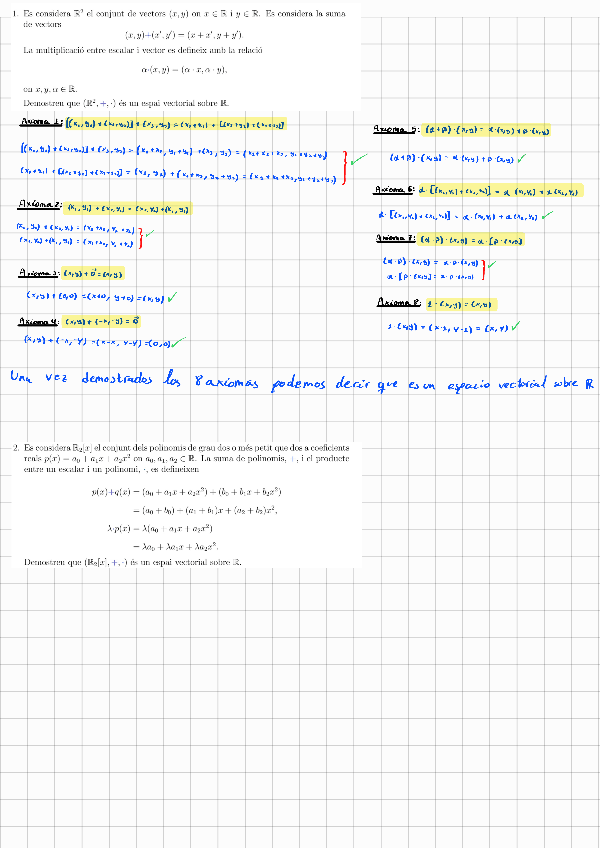 1. Es considera ℝ² el conjunt de vectors (x, y) on x ∈ ℝ i y ∈ ℝ. Es considera la suma
de vectors
(x, y)+(x', y') = (x + x', y + y').
La multiplicació entre escalar i vector es defineix amb la relació
α·(x, y) = (α · x, α · y),
on x, y, α ∈ ℝ.
Demostreu que (ℝ², +, ·) és un espai vectorial sobre ℝ.
Axioma 1:
Axioma 2: (x₁, y₁) + (x₂, y₂) = (x₂, y₂) + (x₁, y₁)
Axioma 3: (x,y) + 0⃗ = (x,y)
(x,y) + (0,0) = (x+0, y+0) = (x,y) ✓
Axioma 4: (x,y) + (-x,-y) = 0⃗
(x,y) + (-x,-y) = (x-x, y-y) = (0,0) ✓
Axioma 5: (α+β)·(x,y) = α·(x,y) + β·(x,y)
(α+β)·(x,y) = α(x,y) + β·(x,y) ✓
Axioma 6:
Axioma 7: (α·β)·(x,y) = α·[β·(x,y)]
(α·β)·(x,y) = α·β·(x,y)
α·[β·(x,y)] = α·β·(x,y) ✓
Axioma 8: 1·(x,y) = (x,y)
1·(x,y) = (x·1, y·1) = (x,y) ✓
Una vez demostrados los 8 axiomas podemos decir que es un espacio vectorial sobre ℝ
2. Es considera ℝ₂[x] el conjunt dels polinomis de grau dos o més petit que dos a coeficients
reals p(x) = a₀ + a₁x + a₂x² on a₀, a₁, a₂ ∈ ℝ. La suma de polinomis, +, i el producte
entre un escalar i un polinomi, ·, es defineixen
p(x)+q(x) = (a₀ + a₁x + a₂x²) + (b₀ + b₁x + b₂x²)
= (a₀ + b₀) + (a₁ + b₁)x + (a₂ + b₂)x²,
λ·p(x) = λ(a₀ + a₁x + a₂x²)
= λa₀ + λa₁x + λa₂x².
Demostreu que (ℝ₂[x], +, ·) és un espai vectorial sobre ℝ.